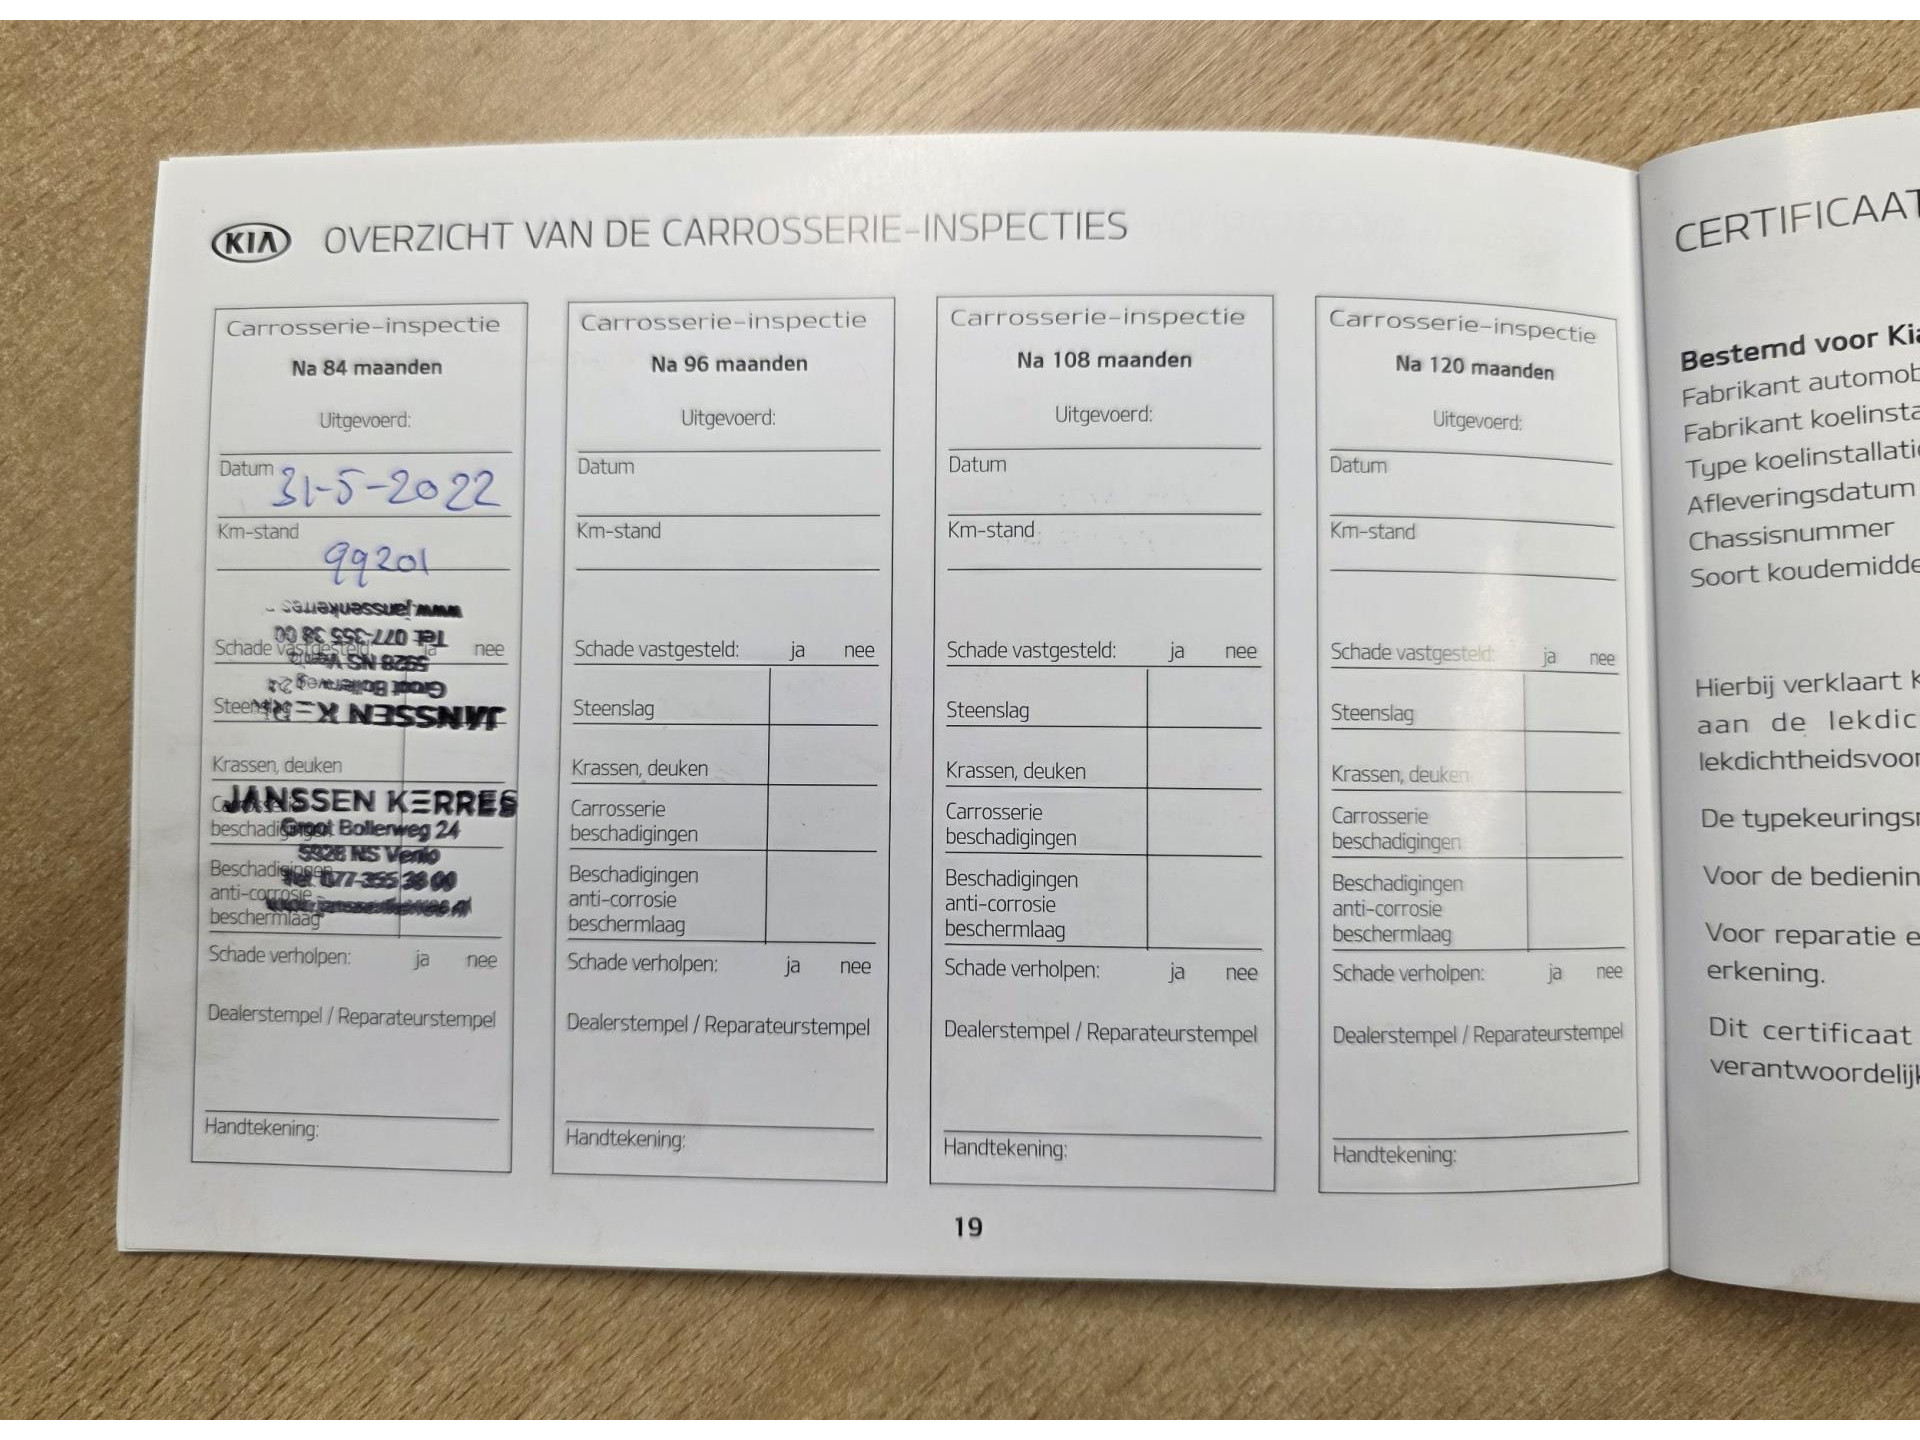 KIA OVERZICHT VAN DE CARROSSERIE-INSPECTIES
Carrosserie-inspectie
Na 84 maanden
Uitgevoerd:
Datum 31-5-2022
Km-stand
99201
www.janssenkerres
Tel. 077-355 38 00
Schade vastgesteld: ja nee
5928 NS Venlo
Groot Bollerweg 24
JANSSEN KERR
Krassen, deuken
JANSSEN KERRES
Carrosserie
beschadigingen
Groot Bollerweg 24
5928 NS Venlo
Beschadigingen
Tel. 077-355 38 00
anti-corrosie
www.janssenkerres.nl
beschermlaag
Schade verholpen: ja nee
Dealerstempel / Reparateurstempel
Handtekening:
Carrosserie-inspectie
Na 96 maanden
Uitgevoerd:
Datum
Km-stand
Schade vastgesteld: ja nee
Steenslag
Krassen, deuken
Carrosserie
beschadigingen
Beschadigingen
anti-corrosie
beschermlaag
Schade verholpen: ja nee
Dealerstempel / Reparateurstempel
Handtekening:
Carrosserie-inspectie
Na 108 maanden
Uitgevoerd:
Datum
Km-stand
Schade vastgesteld: ja nee
Steenslag
Krassen, deuken
Carrosserie
beschadigingen
Beschadigingen
anti-corrosie
beschermlaag
Schade verholpen: ja nee
Dealerstempel / Reparateurstempel
Handtekening:
Carrosserie-inspectie
Na 120 maanden
Uitgevoerd:
Datum
Km-stand
Schade vastgesteld: ja nee
Steenslag
Krassen, deuken
Carrosserie
beschadigingen
Beschadigingen
anti-corrosie
beschermlaag
Schade verholpen: ja nee
Dealerstempel / Reparateurstempel
Handtekening:
19
CERTIFICAAT
Bestemd voor Kia
Fabrikant automob
Fabrikant koelinsta
Type koelinstallati
Afleveringsdatum
Chassisnummer
Soort koudemidde
Hierbij verklaart K
aan de lekdic
lekdichtheidsvoor
De typekeuringsn
Voor de bedienin
Voor reparatie e
erkening.
Dit certificaat
verantwoordelijk